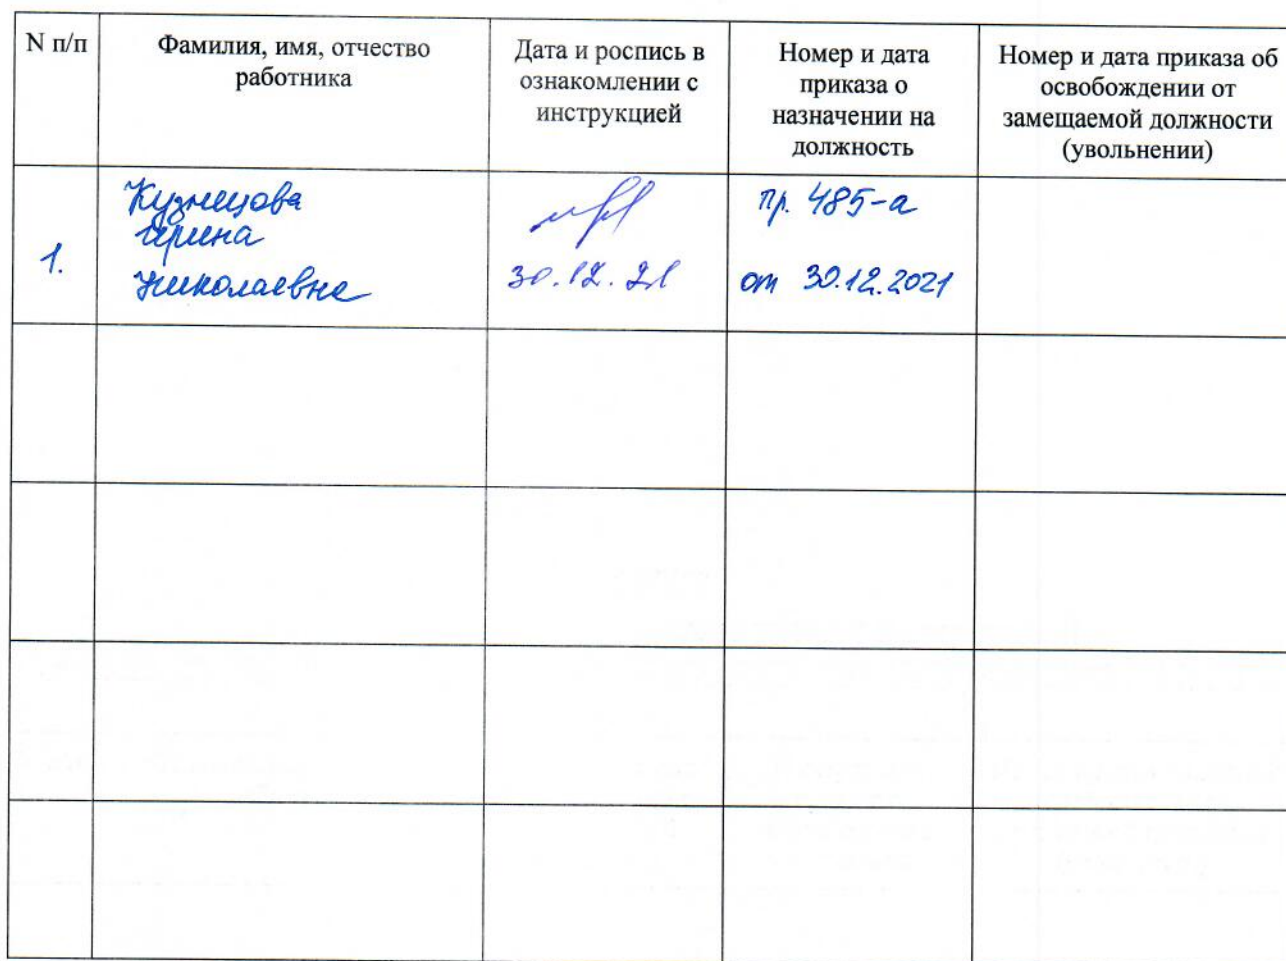 N п/п
Фамилия, имя, отчество
работника
Дата и роспись в
ознакомлении с
инструкцией
Номер и дата
приказа о
назначении на
должность
Номер и дата приказа об
освобождении от
замещаемой должности
(увольнении)
1.
Кузнецова
Ирина
Николаевна
30.12.21
пр. 485-а
от 30.12.2021